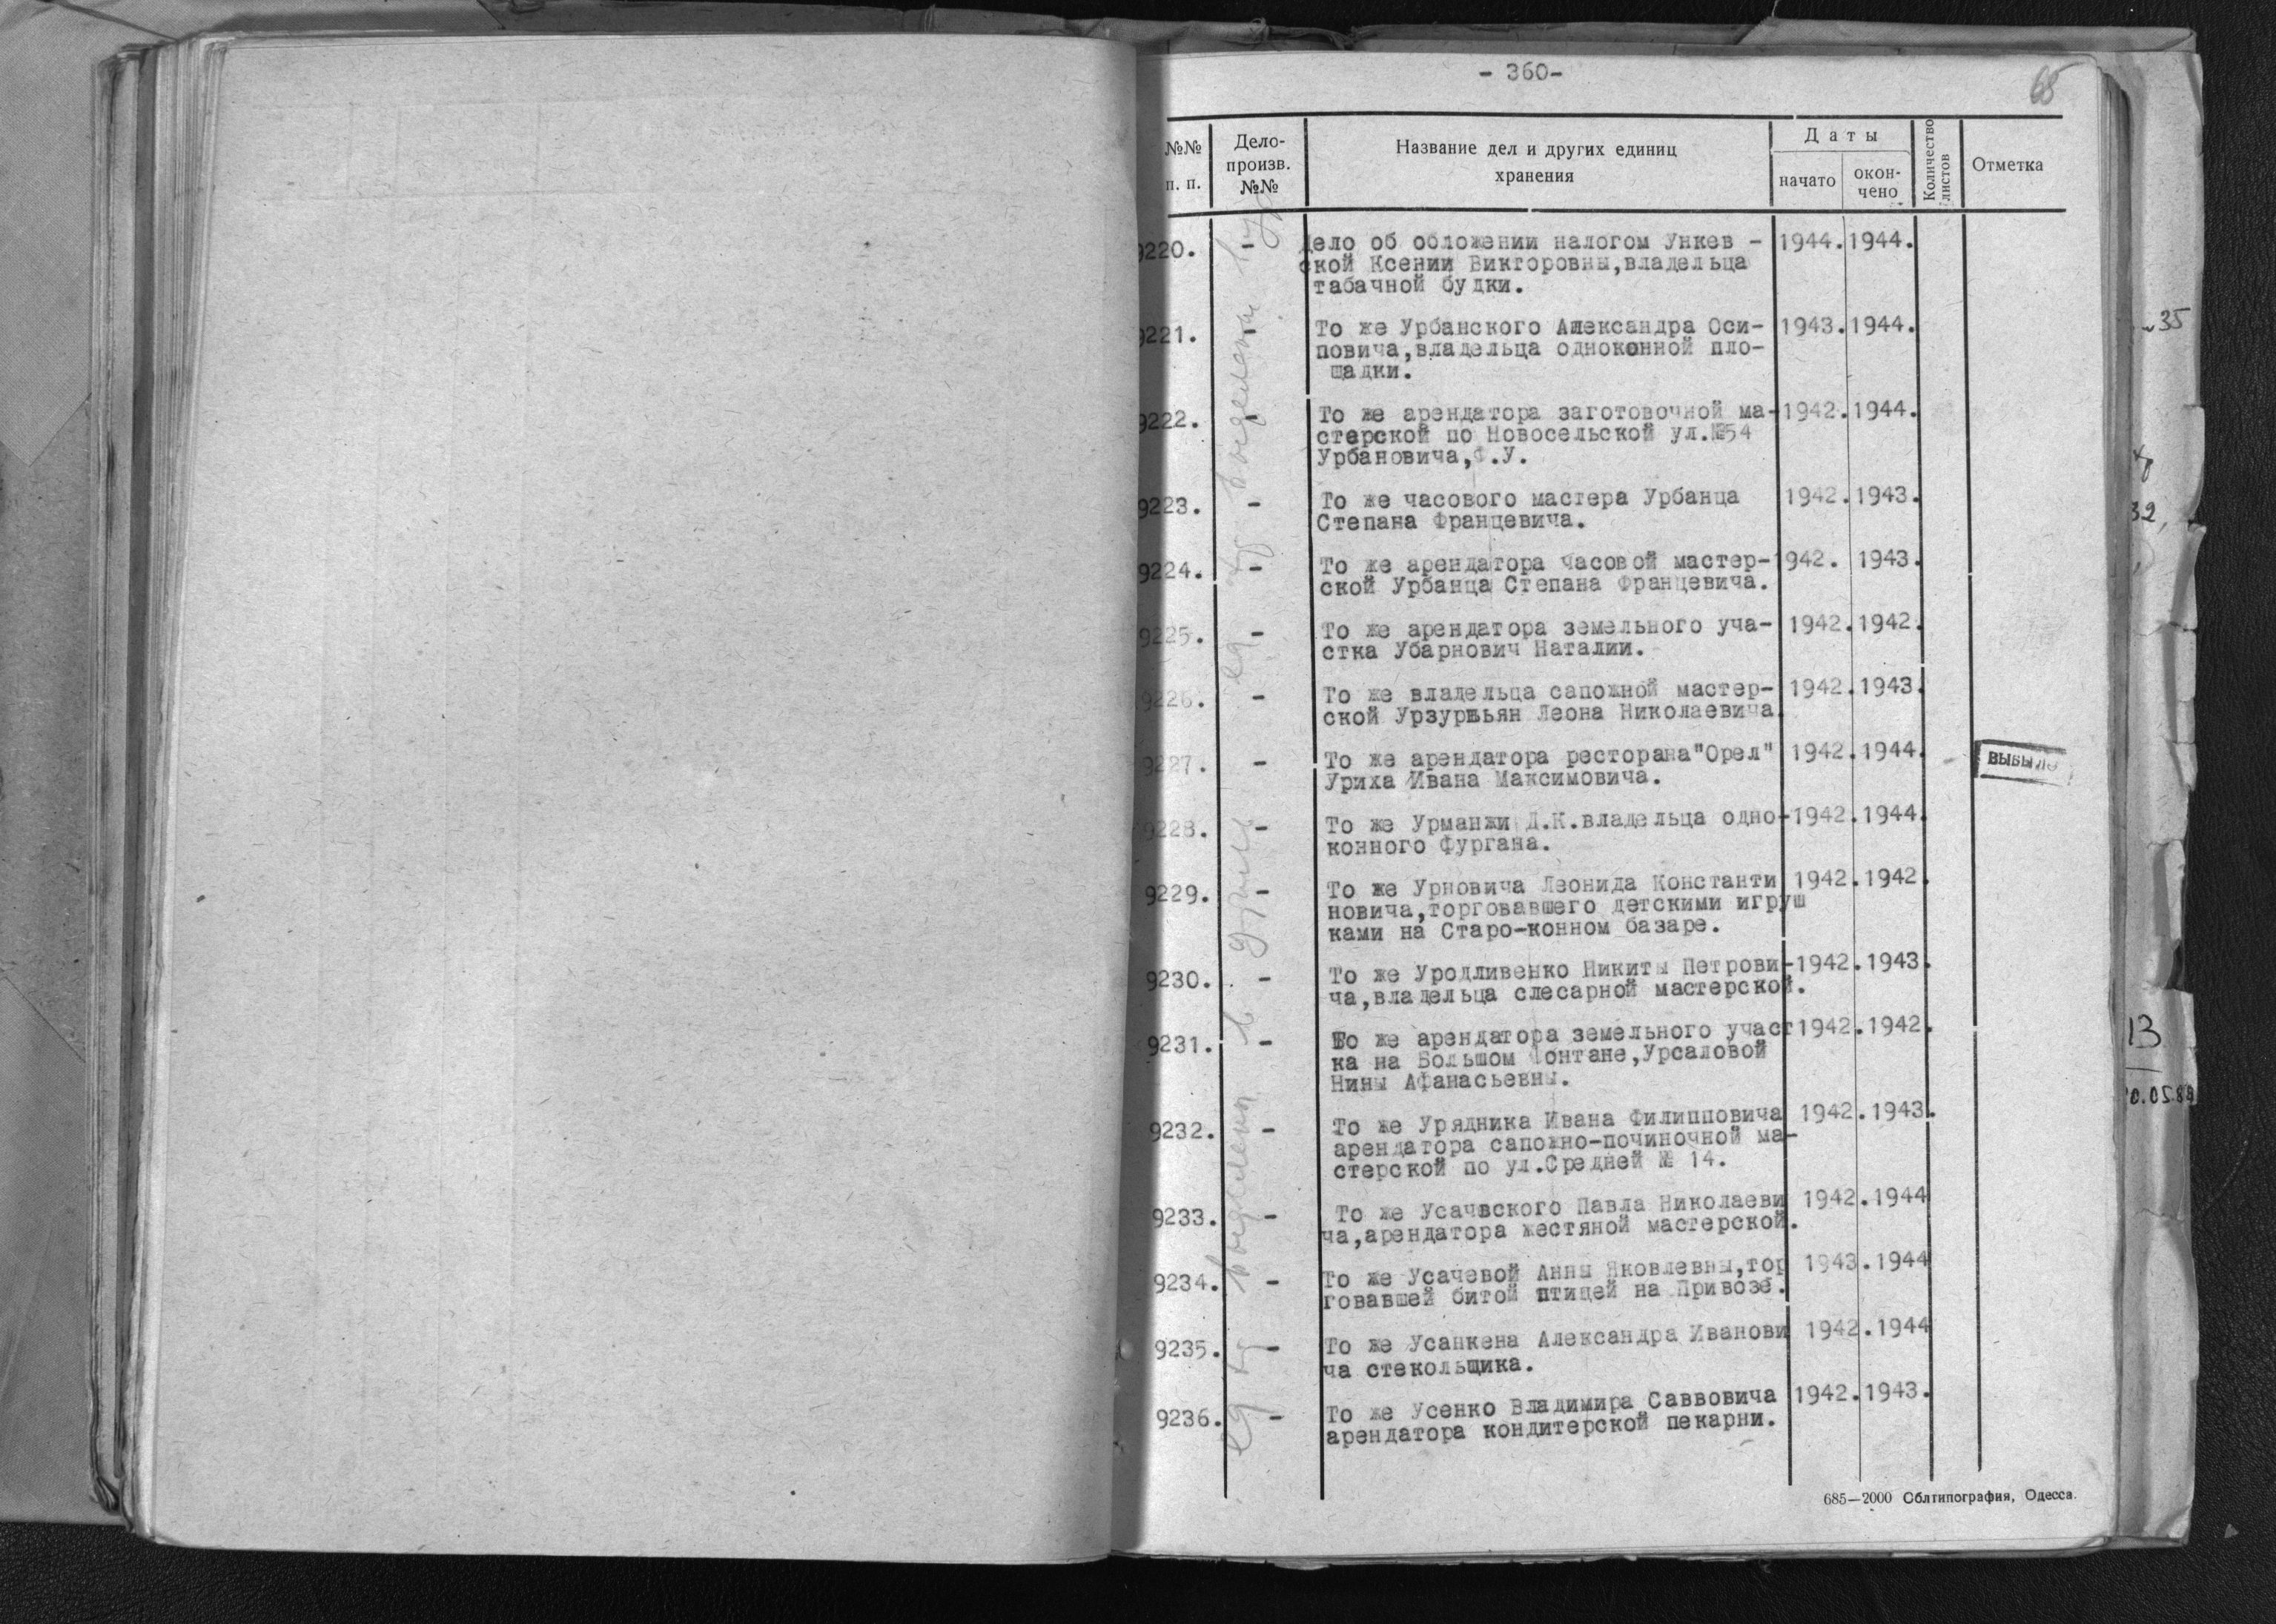 - 360-
68
№№ п. п.
Дело-произв. №№
Название дел и других единиц хранения
Даты
начато
окончено
Количество листов
Отметка
9220. - Дело об обложении налогом Ункев - 1944. 1944.
ской Ксении Викторовны,владельца
табачной будки.
9221. - То же Урбанского Александра Оси- 1943. 1944.
повича,владельца одноконной пло-
щадки.
9222. - То же арендатора заготовочной ма- 1942. 1944.
стерской по Новосельской ул.№54
Урбановича,Ф.У.
9223. - То же часового мастера Урбанца 1942. 1943.
Степана Францевича.
9224. - То же арендатора часовой мастер- 1942. 1943.
ской Урбанца Степана Францевича.
9225. - То же арендатора земельного уча- 1942. 1942.
стка Убарнович Наталии.
9226. - То же владельца сапожной мастер- 1942. 1943.
ской Леона Николаевича
9227. - То же арендатора ресторана"Орел" 1942. 1944.
Уриха Ивана Максимовича.
ВЫБЫЛО
9228. - То же Урманжи Д.К.владельца одно- 1942. 1944.
конного фургана.
9229. - То же Урновича Леонида Константи 1942. 1942.
новича,торговавшего детскими игруш
ками на Старо-конном базаре.
9230. - То же Уродливенко Никиты Петрови- 1942. 1943.
ча,владельца слесарной мастерской.
9231. - То же арендатора земельного участ 1942. 1942.
ка на Большом Фонтане,Урсаловой
Нины Афанасьевны.
9232. - То же Урядника Ивана Филипповича 1942. 1943.
арендатора сапожно-починочной ма-
стерской по ул.Средней № 14.
9233. - То же Усачвского Павла Николаеви 1942. 1944
ча,арендатора жестяной мастерской.
9234. - То же Усачевой Анны Яковлевны,тор 1943. 1944
говавшей битой птицей на Привозе.
9235. - То же Усанкена Александра Иванови 1942. 1944
ча стекольщика.
9236. - То же Усенко Владимира Саввовича 1942. 1943.
арендатора кондитерской пекарни.
685—2000 Облтипография, Одесса.
35
32,
13
0.05.88